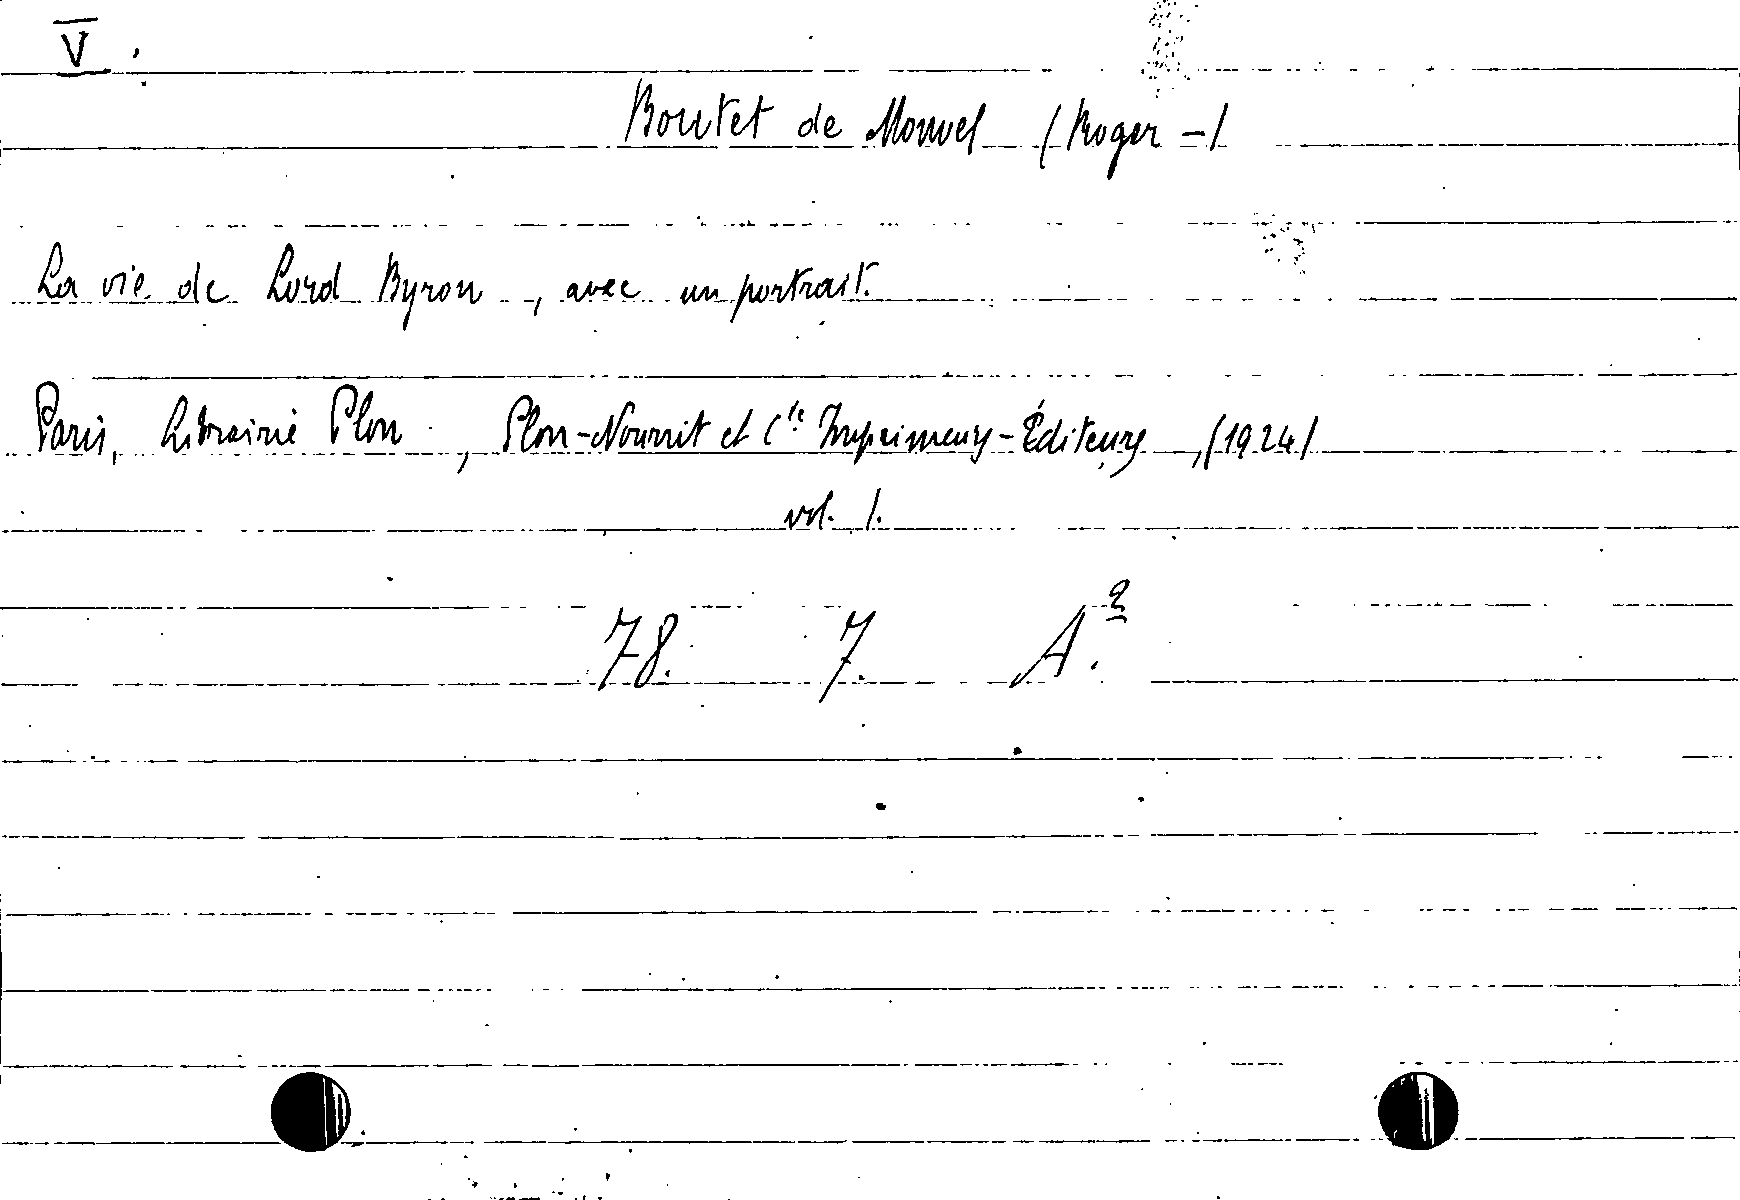 V
Boutet de Monvel (Roger -)
La vie de Lord Byron, avec un portrait.
Paris, Librairie Plon, Plon-Nourrit et Cie Imprimeurs-Éditeurs, (1924)
vol. 1.
78. 7. A.2